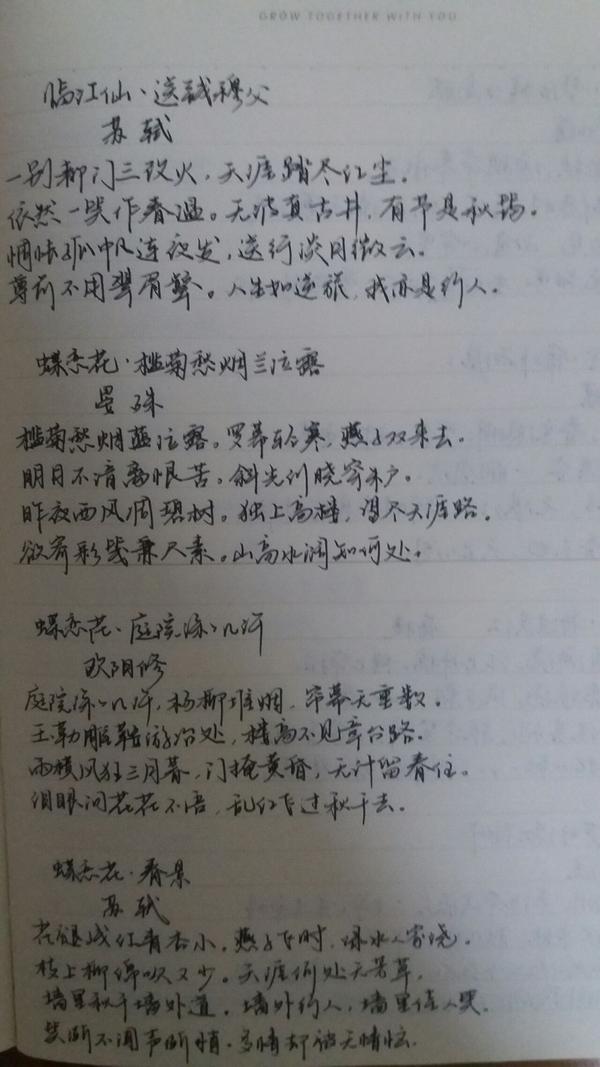 GROW TOGETHER WITH YOU
临江仙·送钱穆父
苏轼
一别都门三改火，天涯踏尽红尘。
依然一笑作春温。无波真古井，有节是秋筠。
惆怅孤帆连夜发，送行淡月微云。
尊前不用翠眉颦。人生如逆旅，我亦是行人。
蝶恋花·槛菊愁烟兰泣露
晏殊
槛菊愁烟兰泣露。罗幕轻寒，燕子双来去。
明月不谙离恨苦。斜光到晓穿朱户。
昨夜西风凋碧树。独上高楼，望尽天涯路。
欲寄彩笺兼尺素。山高水阔知何处。
蝶恋花·庭院深深几许
欧阳修
庭院深深几许，杨柳堆烟，帘幕无重数。
玉勒雕鞍游冶处，楼高不见章台路。
雨横风狂三月暮，门掩黄昏，无计留春住。
泪眼问花花不语，乱红飞过秋千去。
蝶恋花·春景
苏轼
花褪残红青杏小，燕子飞时，绿水人家绕。
枝上柳绵吹又少。天涯何处无芳草，
墙里秋千墙外道，墙外行人，墙里佳人笑。
笑渐不闻声渐悄，多情却被无情恼。